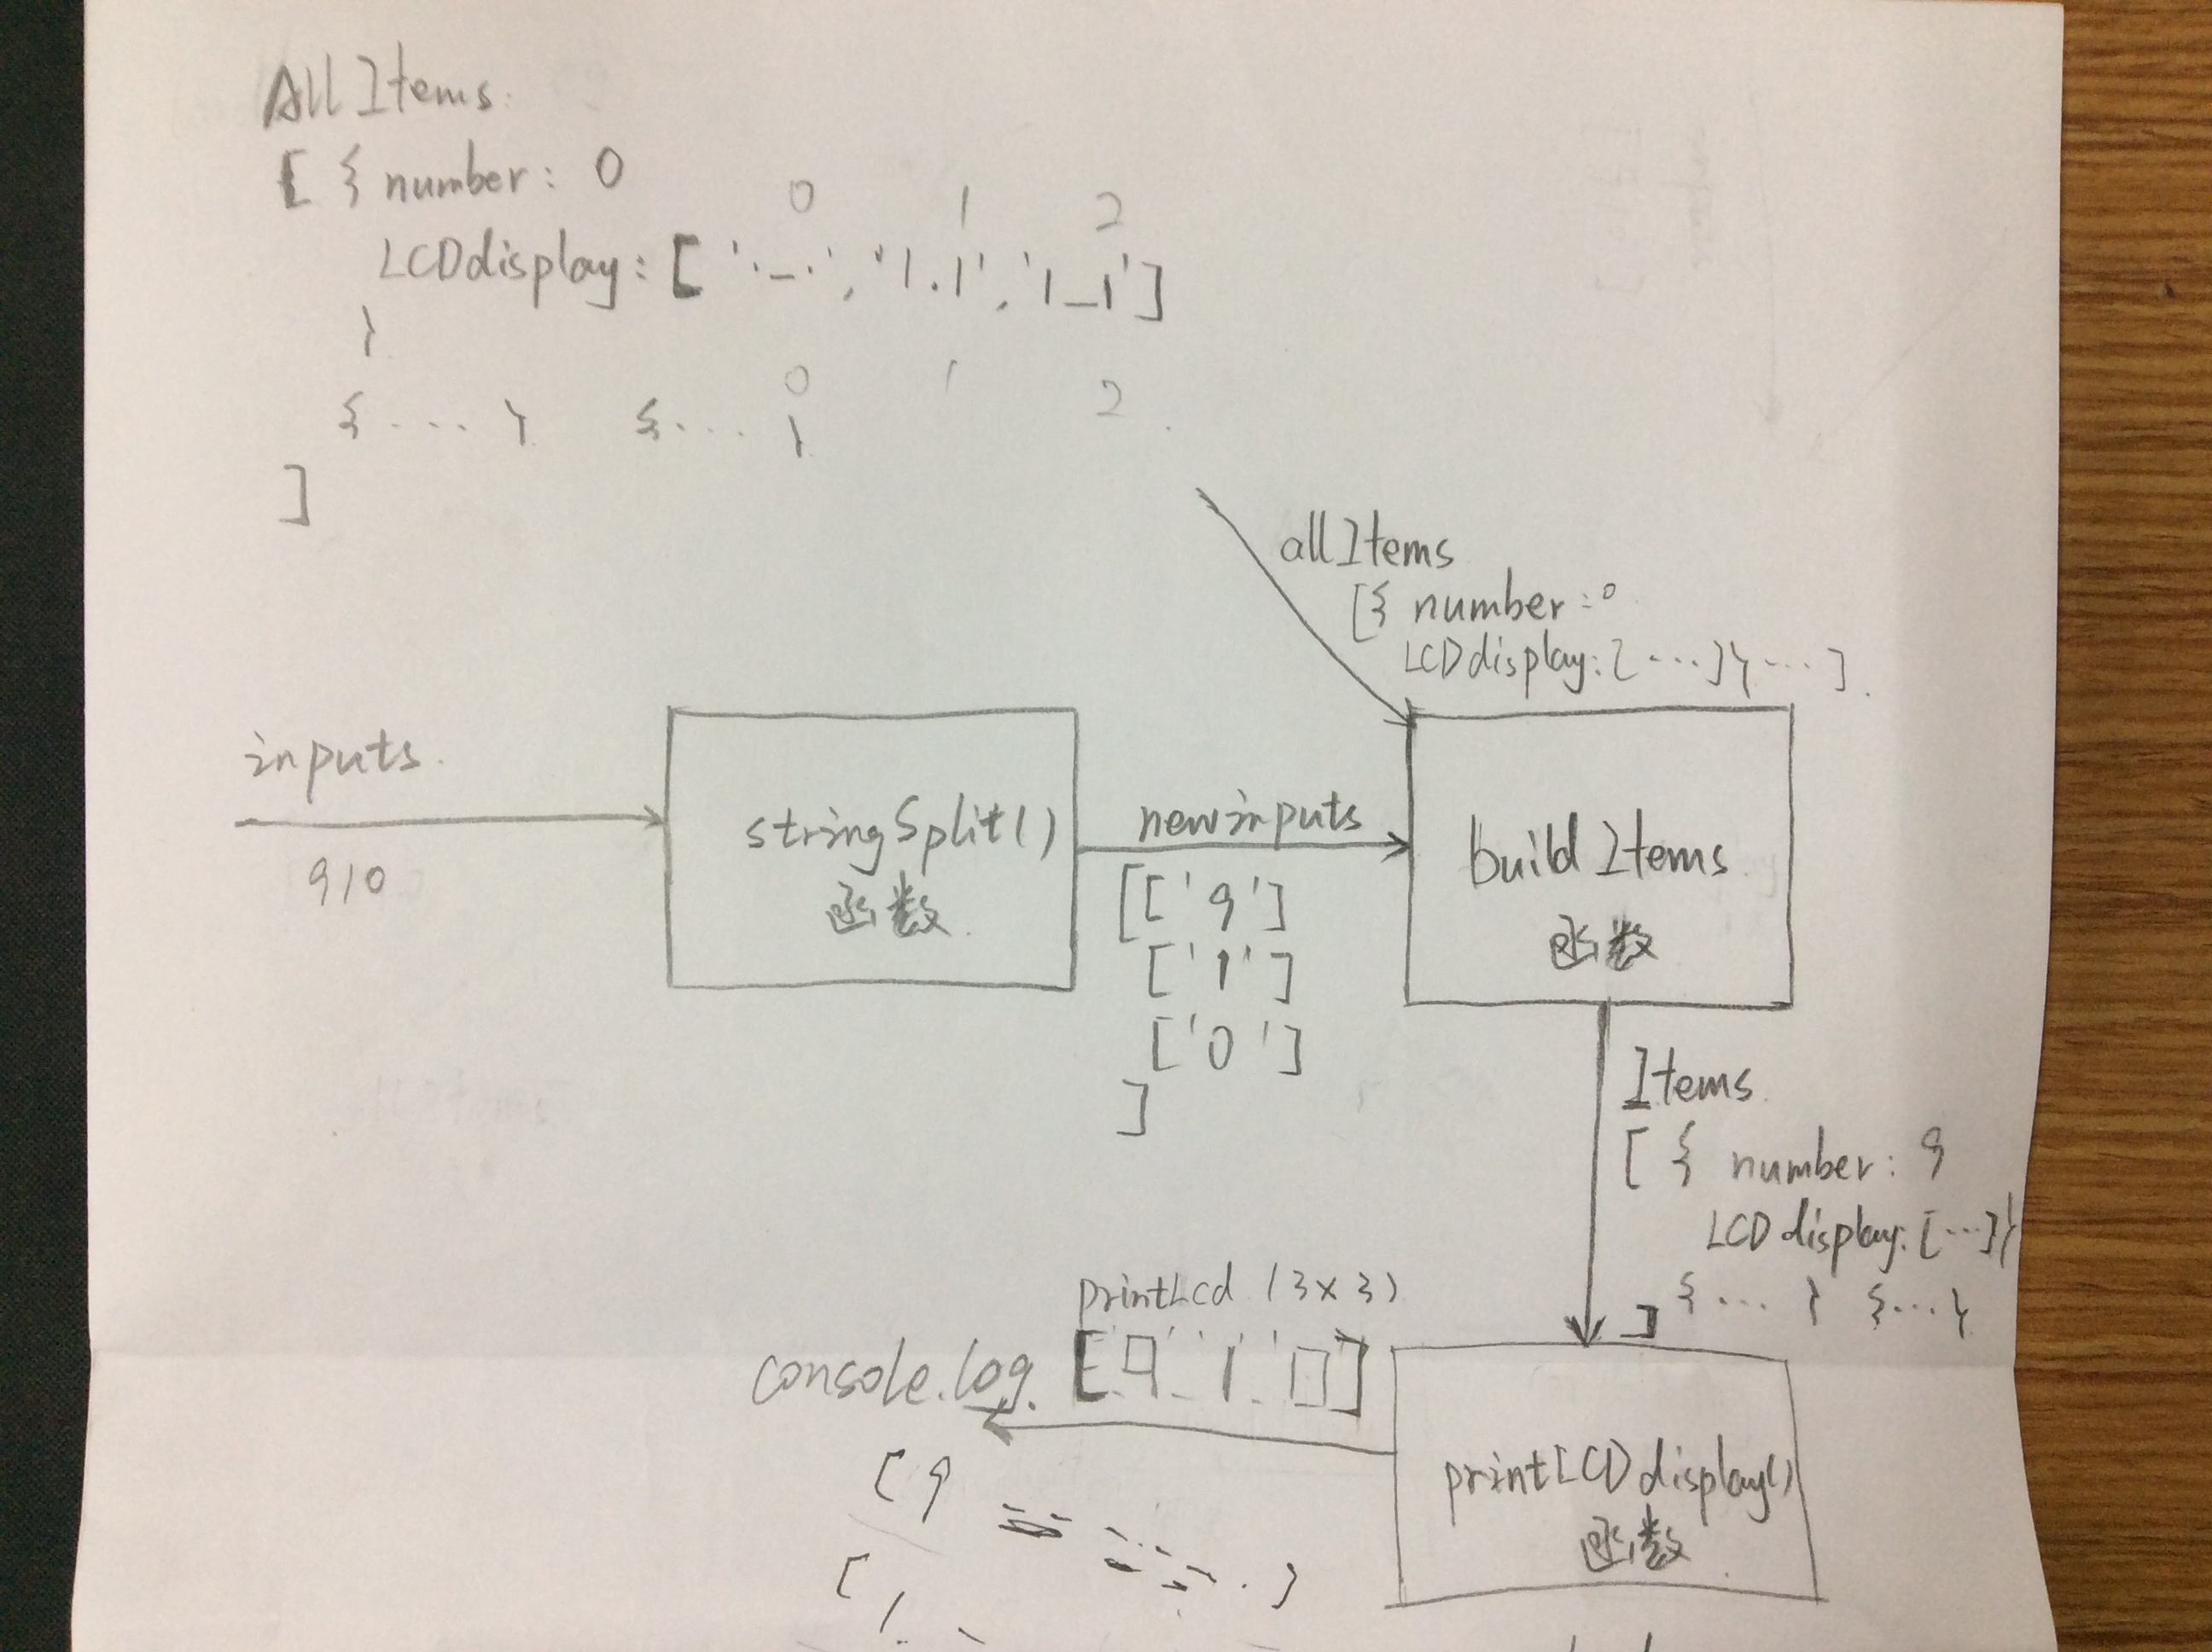 All Items:
[ { number: 0
0 1 2
LCDdisplay: [ '._.', '|.|', '|_|' ]
}
0 1 2
{ .... } { ... }
]
allItems
[{ number: 0
LCDdisplay: [ ... ] } ... ]
inputs
910
stringSplit()
函数
newinputs
[['9']
['1']
['0']
]
buildItems
函数
Items
[ { number: 9
LCDdisplay: [ ... ] }
{ ... } { ... }
]
printLcd (3x3)
console.log. [ 9 1 0 ]
printLCDdisplay()
函数
[ 9
[ 1